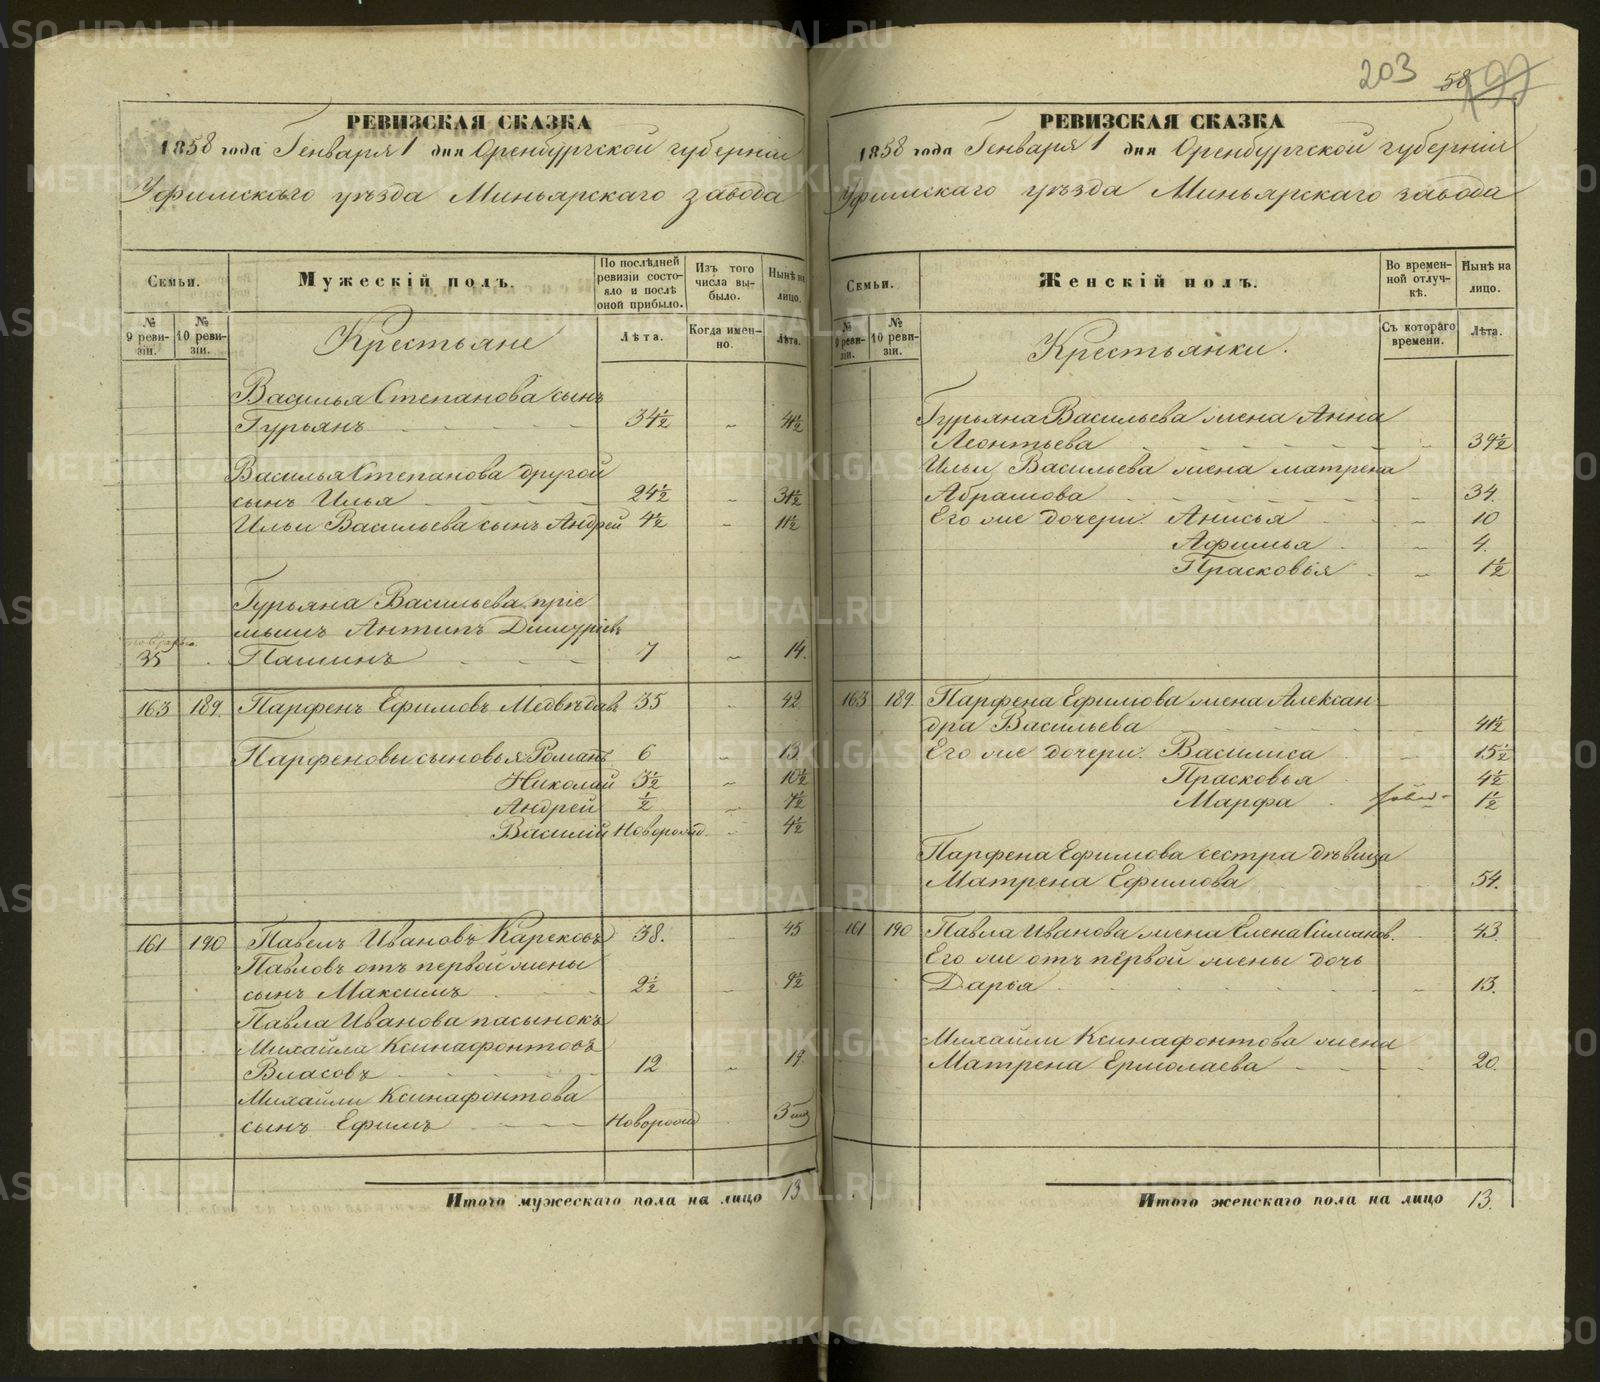 203 58 197
РЕВИЗСКАЯ СКАЗКА
1858 года Генваря 1 дня Оренбургской губерніи
Уфимскаго уѣзда Миньярскаго завода
Семьи.
Мужескій полъ.
По послѣдней ревизіи состояло и послѣ оной прибыло.
Изъ того числа выбыло.
Нынѣ на лицо.
№ 9 ревизіи.
№ 10 ревизіи.
Крестьяне
Лѣта.
Когда именно.
Лѣта.
Василья Степанова сынъ
Гурьянъ 34½ 41½
Василья Степанова другой
сынъ Илья 24½ 31½
Ильи Васильева сынъ Андрей 4½ 11½
Гурьяна Васильева пріе
мышъ Антипъ Димитріевъ
35 Пашинъ 7 14.
163 189. Парфенъ Ефимовъ Медвѣдевъ 35 42
Парфеновы сыновья Романъ 6 13
Николай 3½ 10½
Андрей ½ 7½
Василій Новорожд. 4½
161 190 Павелъ Ивановъ Карековъ 38. 45
Павловъ отъ первой жены
сынъ Максимъ 2½ 9½
Павла Иванова пасынокъ
Михайла Ксинафонтовъ
Власовъ 12 19
Михайлы Ксинафонтова
сынъ Ефимъ Новорожд 3 мѣс
Итого мужескаго пола на лицо 13
РЕВИЗСКАЯ СКАЗКА
1858 года Генваря 1 дня Оренбургской губерніи
Уфимскаго уѣзда Миньярскаго завода
Семьи.
Женскій полъ.
Во временной отлучкѣ.
Нынѣ на лицо.
№ 9 ревизіи.
№ 10 ревизіи.
Крестьянки.
Съ котораго времени.
Лѣта.
Гурьяна Васильева жена Анна
Леонтьева 39½
Ильи Васильева жена Матрена
Абрамова 34.
Его же дочери: Анисья 10
Афимья 4.
Прасковья 1½
163 189. Парфена Ефимова жена Алексан
дра Васильева 41½
Его же дочери: Василиса 15½
Прасковья 4½
Марфа 1½
Парфена Ефимова сестра дѣвица
Матрена Ефимова 54.
161 190 Павла Иванова жена Елена Симанов. 43.
Его же отъ первой жены дочь
Дарья 13.
Михайлы Ксинафонтова жена
Матрена Ермолаева 20.
Итого женскаго пола на лицо 13.
METRIKI.GASO-URAL.RU